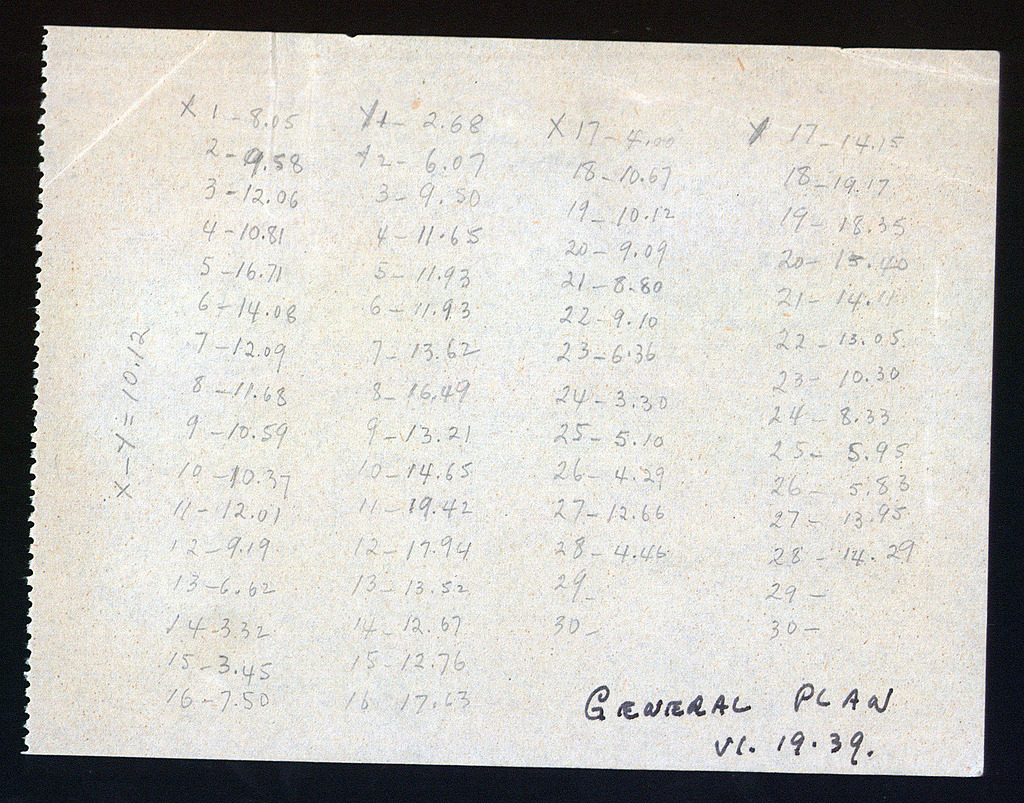 X 1 - 8.05
2 - 9.58
3 - 12.06
4 - 10.81
5 - 16.71
6 - 14.08
7 - 12.09
8 - 11.68
9 - 10.59
10 - 10.37
11 - 12.01
12 - 9.19
13 - 6.62
14 - 3.32
15 - 3.45
16 - 7.50
Y 1 - 2.68
Y 2 - 6.07
3 - 9.50
4 - 11.65
5 - 11.93
6 - 11.93
7 - 13.62
8 - 16.49
9 - 13.21
10 - 14.65
11 - 19.42
12 - 17.94
13 - 13.52
14 - 12.67
15 - 12.76
16 17.63
X 17 - 4.00
18 - 10.67
19 - 10.12
20 - 9.09
21 - 8.80
22 - 9.10
23 - 6.36
24 - 3.30
25 - 5.10
26 - 4.29
27 - 12.66
28 - 4.46
29 -
30 -
Y 17 - 14.15
18 - 19.17
19 - 18.35
20 - 15.40
21 - 14.11
22 - 13.05
23 - 10.30
24 - 8.33
25 - 5.95
26 - 5.83
27 - 13.95
28 - 14.29
29 -
30 -
X - Y = 10.12
GENERAL PLAN
VI. 19.39.